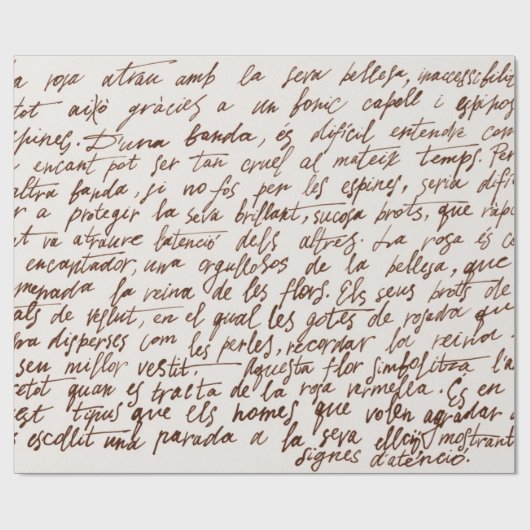 a roja atrau amb la seva bellesa, inaccessibilit
tot això gràcies a un bonic capell i espinos
spines. D'una banda, és difícil entendre com
encant pot ser tan cruel al mateix temps. Per
altra banda, si no fos per les espines, seria difí
r a protegir la seva brillant, sucosa brots, que ràpi
t va atraure l'atenció dels altres. La rosa és c
encantador, una orgullosos de la bellesa, que
menada la reina de les flors. Els seus brots de
als de vellut, en el qual les gotes de rosada que
bra disperses com les perles, recordar la reina
seu millor vestit. Aquesta flor simbolitza l'a
etot quan es tracta de la roja vermella. És en
est tipus que els homes que volen agradar a
s escollit una parada a la seva elecció, mostrant
signes d'atenció.